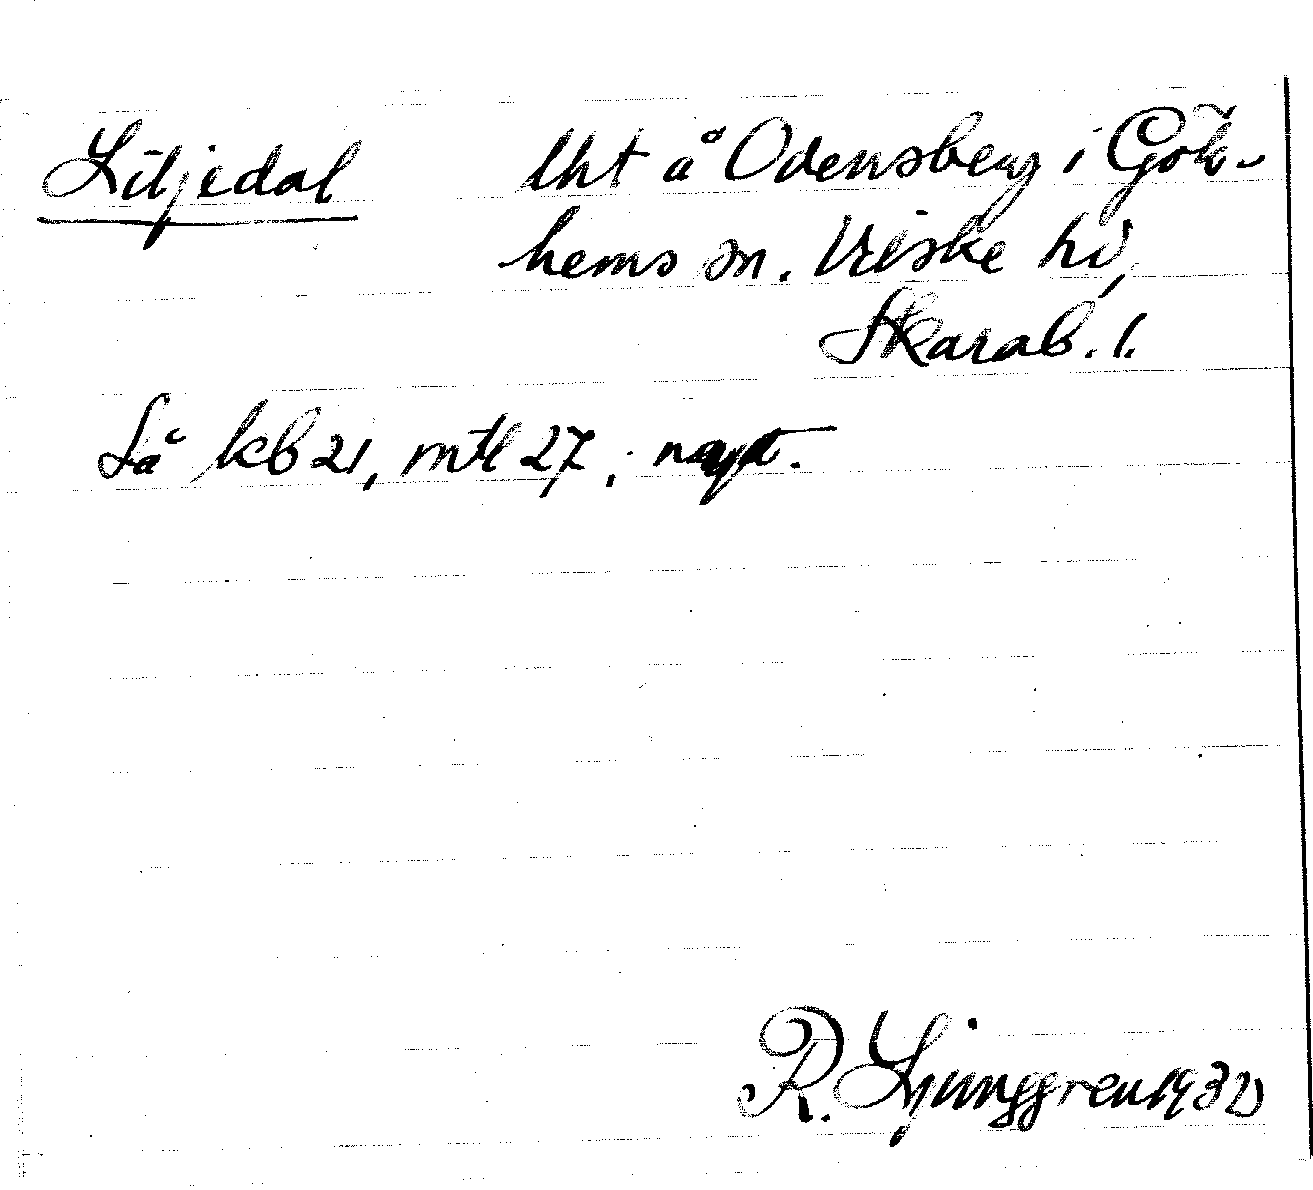 Liljedal lht å Odensberg i Gök-
hems sn. Vilske hd,
Skarab. l.
Så kb 21, mtl 27;
R. Ljunggren 1932